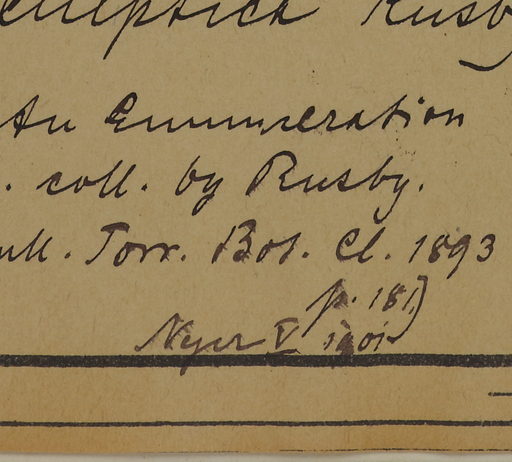 elliptica Rusby
An Enumeration
. coll. by Rusby.
Bull. Torr. Bot. Cl. 1893
p. 181)
V 1901